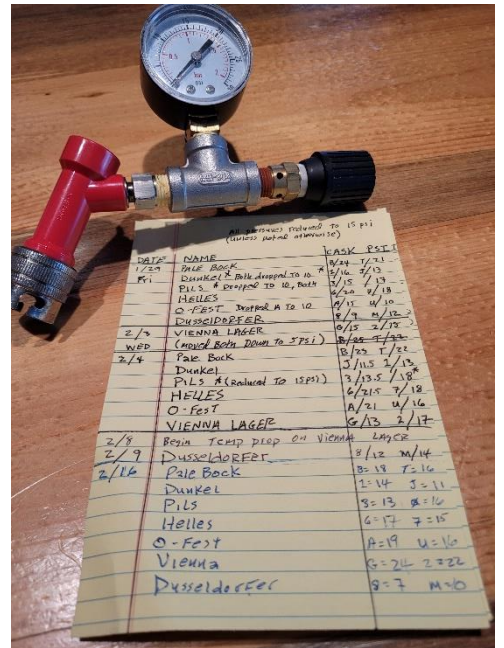 All pressures reduced to 15 psi
(unless noted otherwise)
DATE NAME CASK PSI
1/29 PALE BOCK B/24 T/21
Fri Dunkel * Both dropped to 10 * 2/16 J/13
PILS * Dropped to 10, Both 3/15 /17
HELLES 6/20 /18
O-FEST Dropped A to 10 A/15 U/10
DUSSELDORFER 8/9 M/12
2/3 VIENNA LAGER G/15 2/18
WED (Moved Both Down to 5psi) B/25 T/22
2/4 Pale Bock B/25 T/22
Dunkel J/11.5 1/13
PILS *(Reduced To 15psi) 3/13.5 /18*
HELLES 6/21.5 7/18
O-Fest A/21 U/16
VIENNA LAGER G/13 2/17
2/8 Begin Temp Drop on Vienna Lager
2/9 DUSSELDORFER 8/12 M/14
2/16 Pale Bock B=18 T=16
Dunkel 1=14 J=11
PILS 3=13 =16
Helles 6=17 7=15
O-Fest A=19 U=16
Vienna G=24 2=22
Dusseldorfer 8=7 M=0